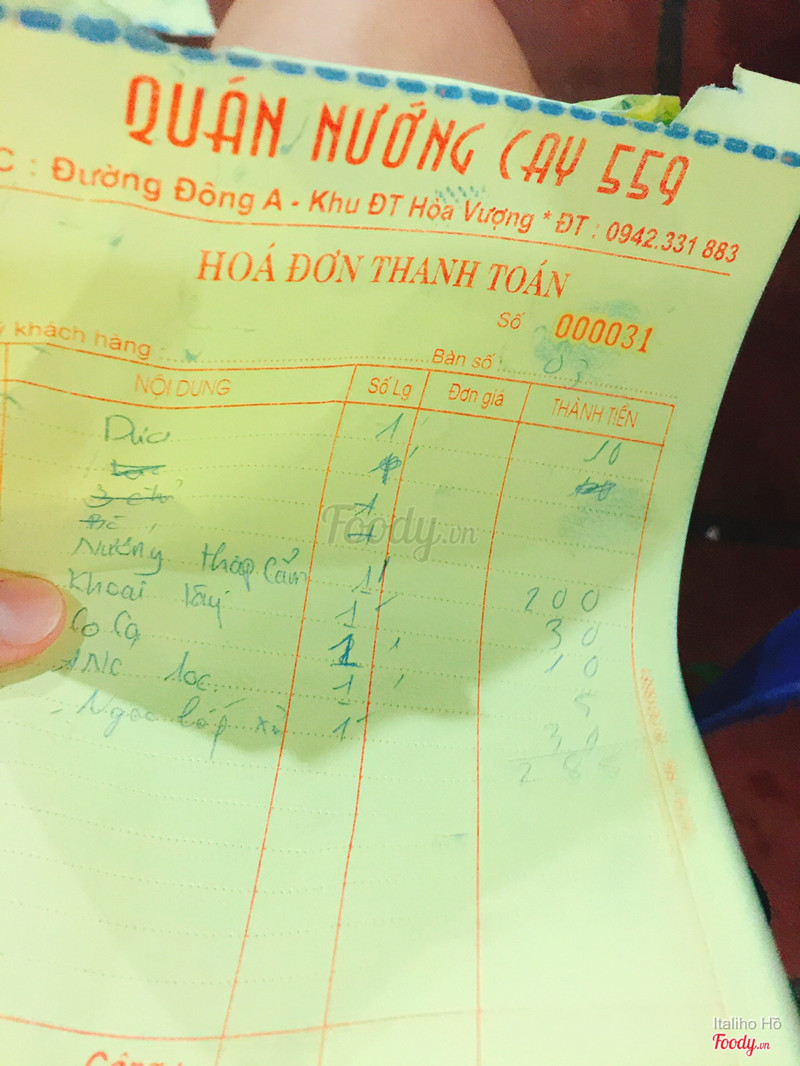 QUÁN NƯỚNG CAY 559
C : Đường Đông A - Khu ĐT Hòa Vượng * ĐT : 0942.331 883
HOÁ ĐƠN THANH TOÁN
Số 000031
khách hàng : Bàn số : 03
NỘI DUNG Số Lg Đơn giá THÀNH TIỀN
1 10
1
1
Nướng thập cẩm 1 200
Khoai tây 1 30
Co Ca 1 10
lọc 1 5
Ngao hấp xả 1 30
285
Foody.vn
Cộng
Italiho Hồ
Foody.vn